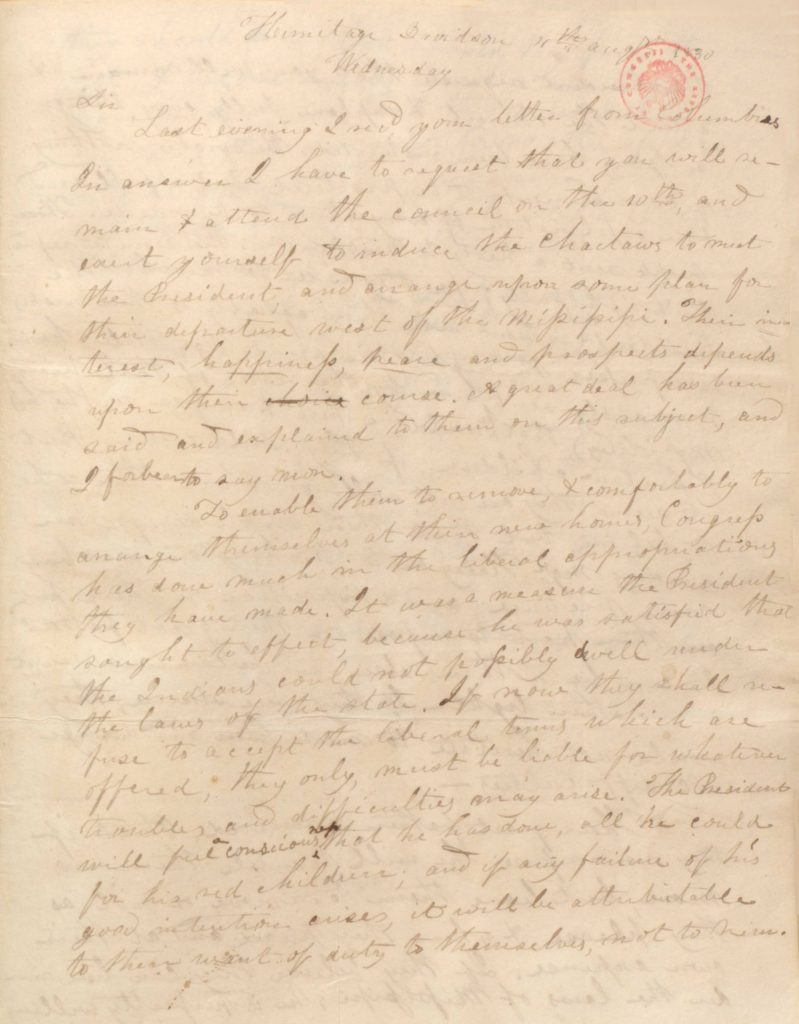 Hermitage Davidson 4th augt 1830
Wednesday
Sir
Last evening I recd, your letter from Columbias
In answer I have to request that you will re-
main & attend the council on the 10th, and
exert yourself to induce the Choctaws to meet
the President, and arrange upon some plan for
their departure west of the Missisippi. Their in-
terest, happiness, peace and prospects depends
upon their choice course. A great deal has been
said and explained to them on this subject, and
I forbear to say more.
To enable them to remove, & comfortably to
arrange themselves at their new homes, Congress
has done much in the liberal appropriations
they have made. It was a measure the President
sought to effect, because he was satisfied that
the Indians could not possibly dwell under
the laws of the state. If now they shall re-
fuse to accept the liberal terms which are
offered, they only, must be liable for whatever
troubles and difficulties may arise. The President
will feel a consciousness that he has done, all he could
for his red children; and if any failure of his
good intention arises, it will be attributable
to their want of duty to themselves, not to him.